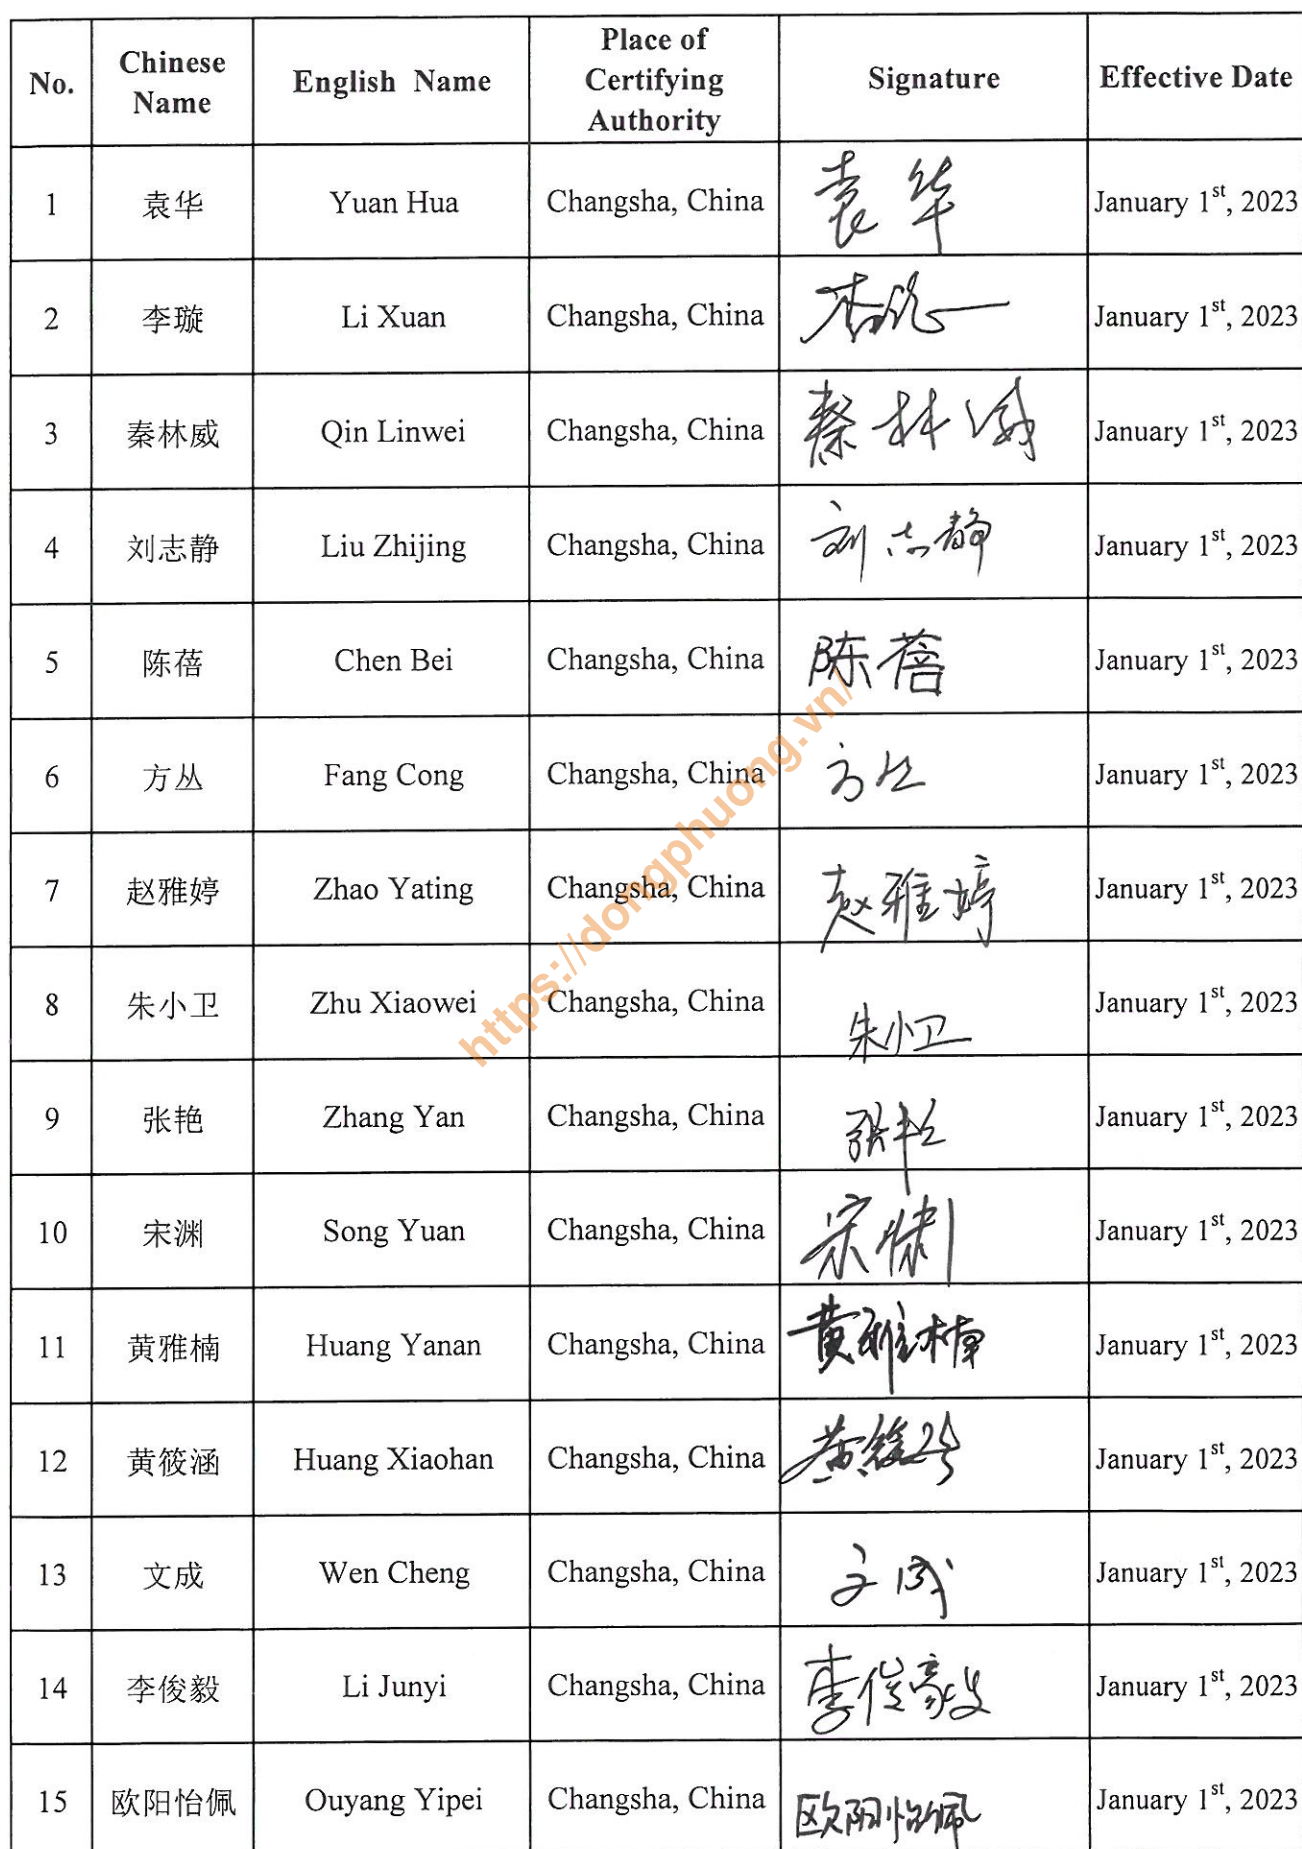 No. Chinese Name English Name Place of Certifying Authority Signature Effective Date
1 袁华 Yuan Hua Changsha, China 袁华 January 1st, 2023
2 李璇 Li Xuan Changsha, China January 1st, 2023
3 秦林威 Qin Linwei Changsha, China 秦林威 January 1st, 2023
4 刘志静 Liu Zhijing Changsha, China 刘志静 January 1st, 2023
5 陈蓓 Chen Bei Changsha, China 陈蓓 January 1st, 2023
6 方丛 Fang Cong Changsha, China 方丛 January 1st, 2023
7 赵雅婷 Zhao Yating Changsha, China 赵雅婷 January 1st, 2023
8 朱小卫 Zhu Xiaowei Changsha, China 朱小卫 January 1st, 2023
9 张艳 Zhang Yan Changsha, China 张艳 January 1st, 2023
10 宋渊 Song Yuan Changsha, China 宋渊 January 1st, 2023
11 黄雅楠 Huang Yanan Changsha, China 黄雅楠 January 1st, 2023
12 黄筱涵 Huang Xiaohan Changsha, China 黄筱涵 January 1st, 2023
13 文成 Wen Cheng Changsha, China 文成 January 1st, 2023
14 李俊毅 Li Junyi Changsha, China 李俊毅 January 1st, 2023
15 欧阳怡佩 Ouyang Yipei Changsha, China 欧阳怡佩 January 1st, 2023
https://dongphuong.vn/